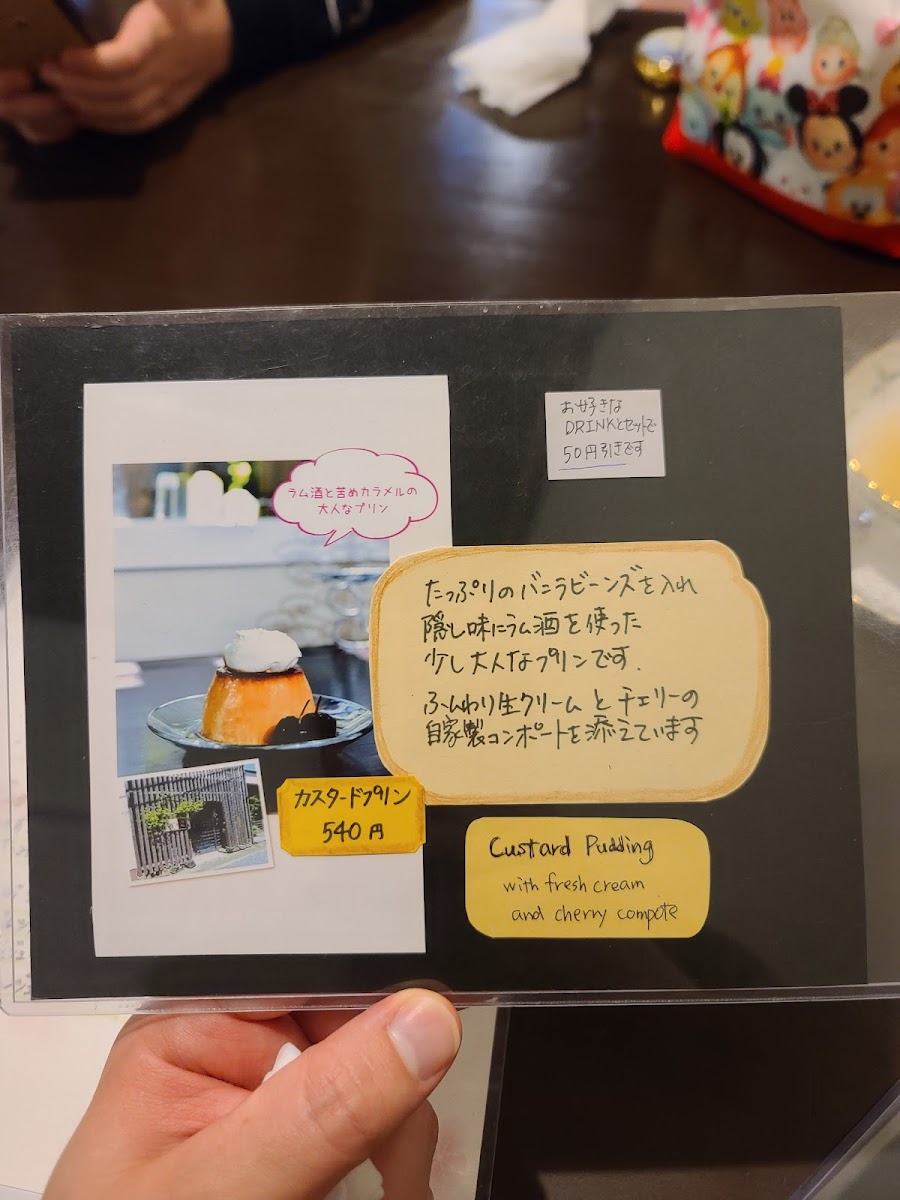 お好きな
DRINKとセットで
50円引きです
ラム酒と苦めカラメルの
大人なプリン
たっぷりのバニラビーンズを入れ
隠し味にラム酒を使った
少し大人なプリンです.
ふんわり生クリームとチェリーの
自家製コンポートを添えています
カスタードプリン
540円
Custard Pudding
with fresh cream
and cherry compote